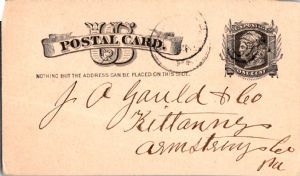 US
POSTAL CARD.
NOTHING BUT THE ADDRESS CAN BE PLACED ON THIS SIDE.
U.S. POSTAGE
ONE CENT
PA.
J. A Gauld & Co
Kittanning
Armstrong Co
Pa